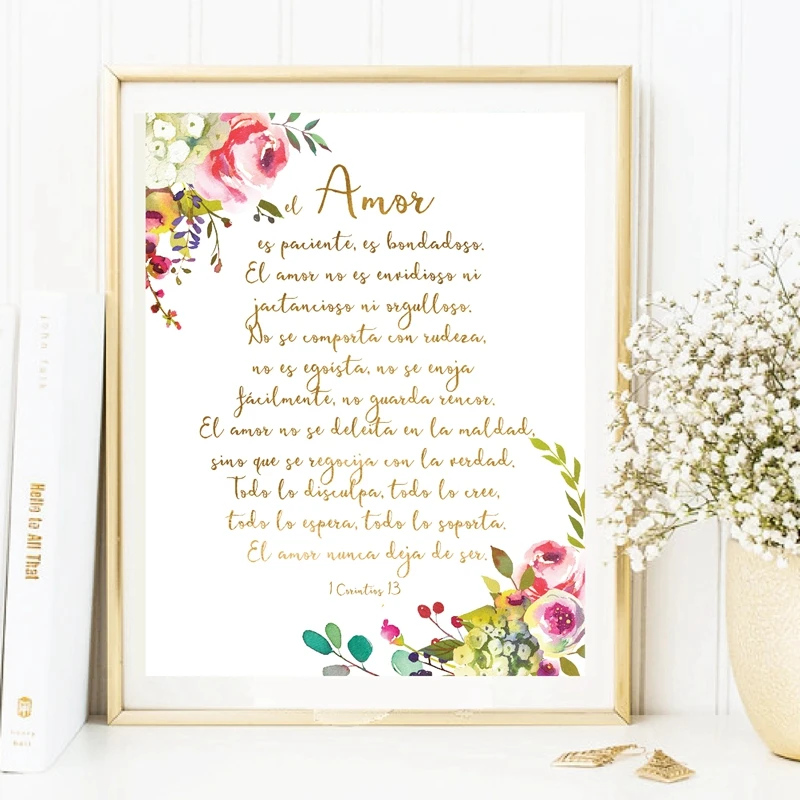 el Amor
es paciente, es bondadoso.
El amor no es envidioso ni
jactancioso ni orgulloso.
No se comporta con rudeza,
no es egoista, no se enoja
fácilmente, no guarda rencor.
El amor no se deleita en la maldad,
sino que se regocija con la verdad.
Todo lo disculpa, todo lo cree,
todo lo espera, todo lo soporta.
El amor nunca deja de ser.
1 Corintios 13
Hello to All That